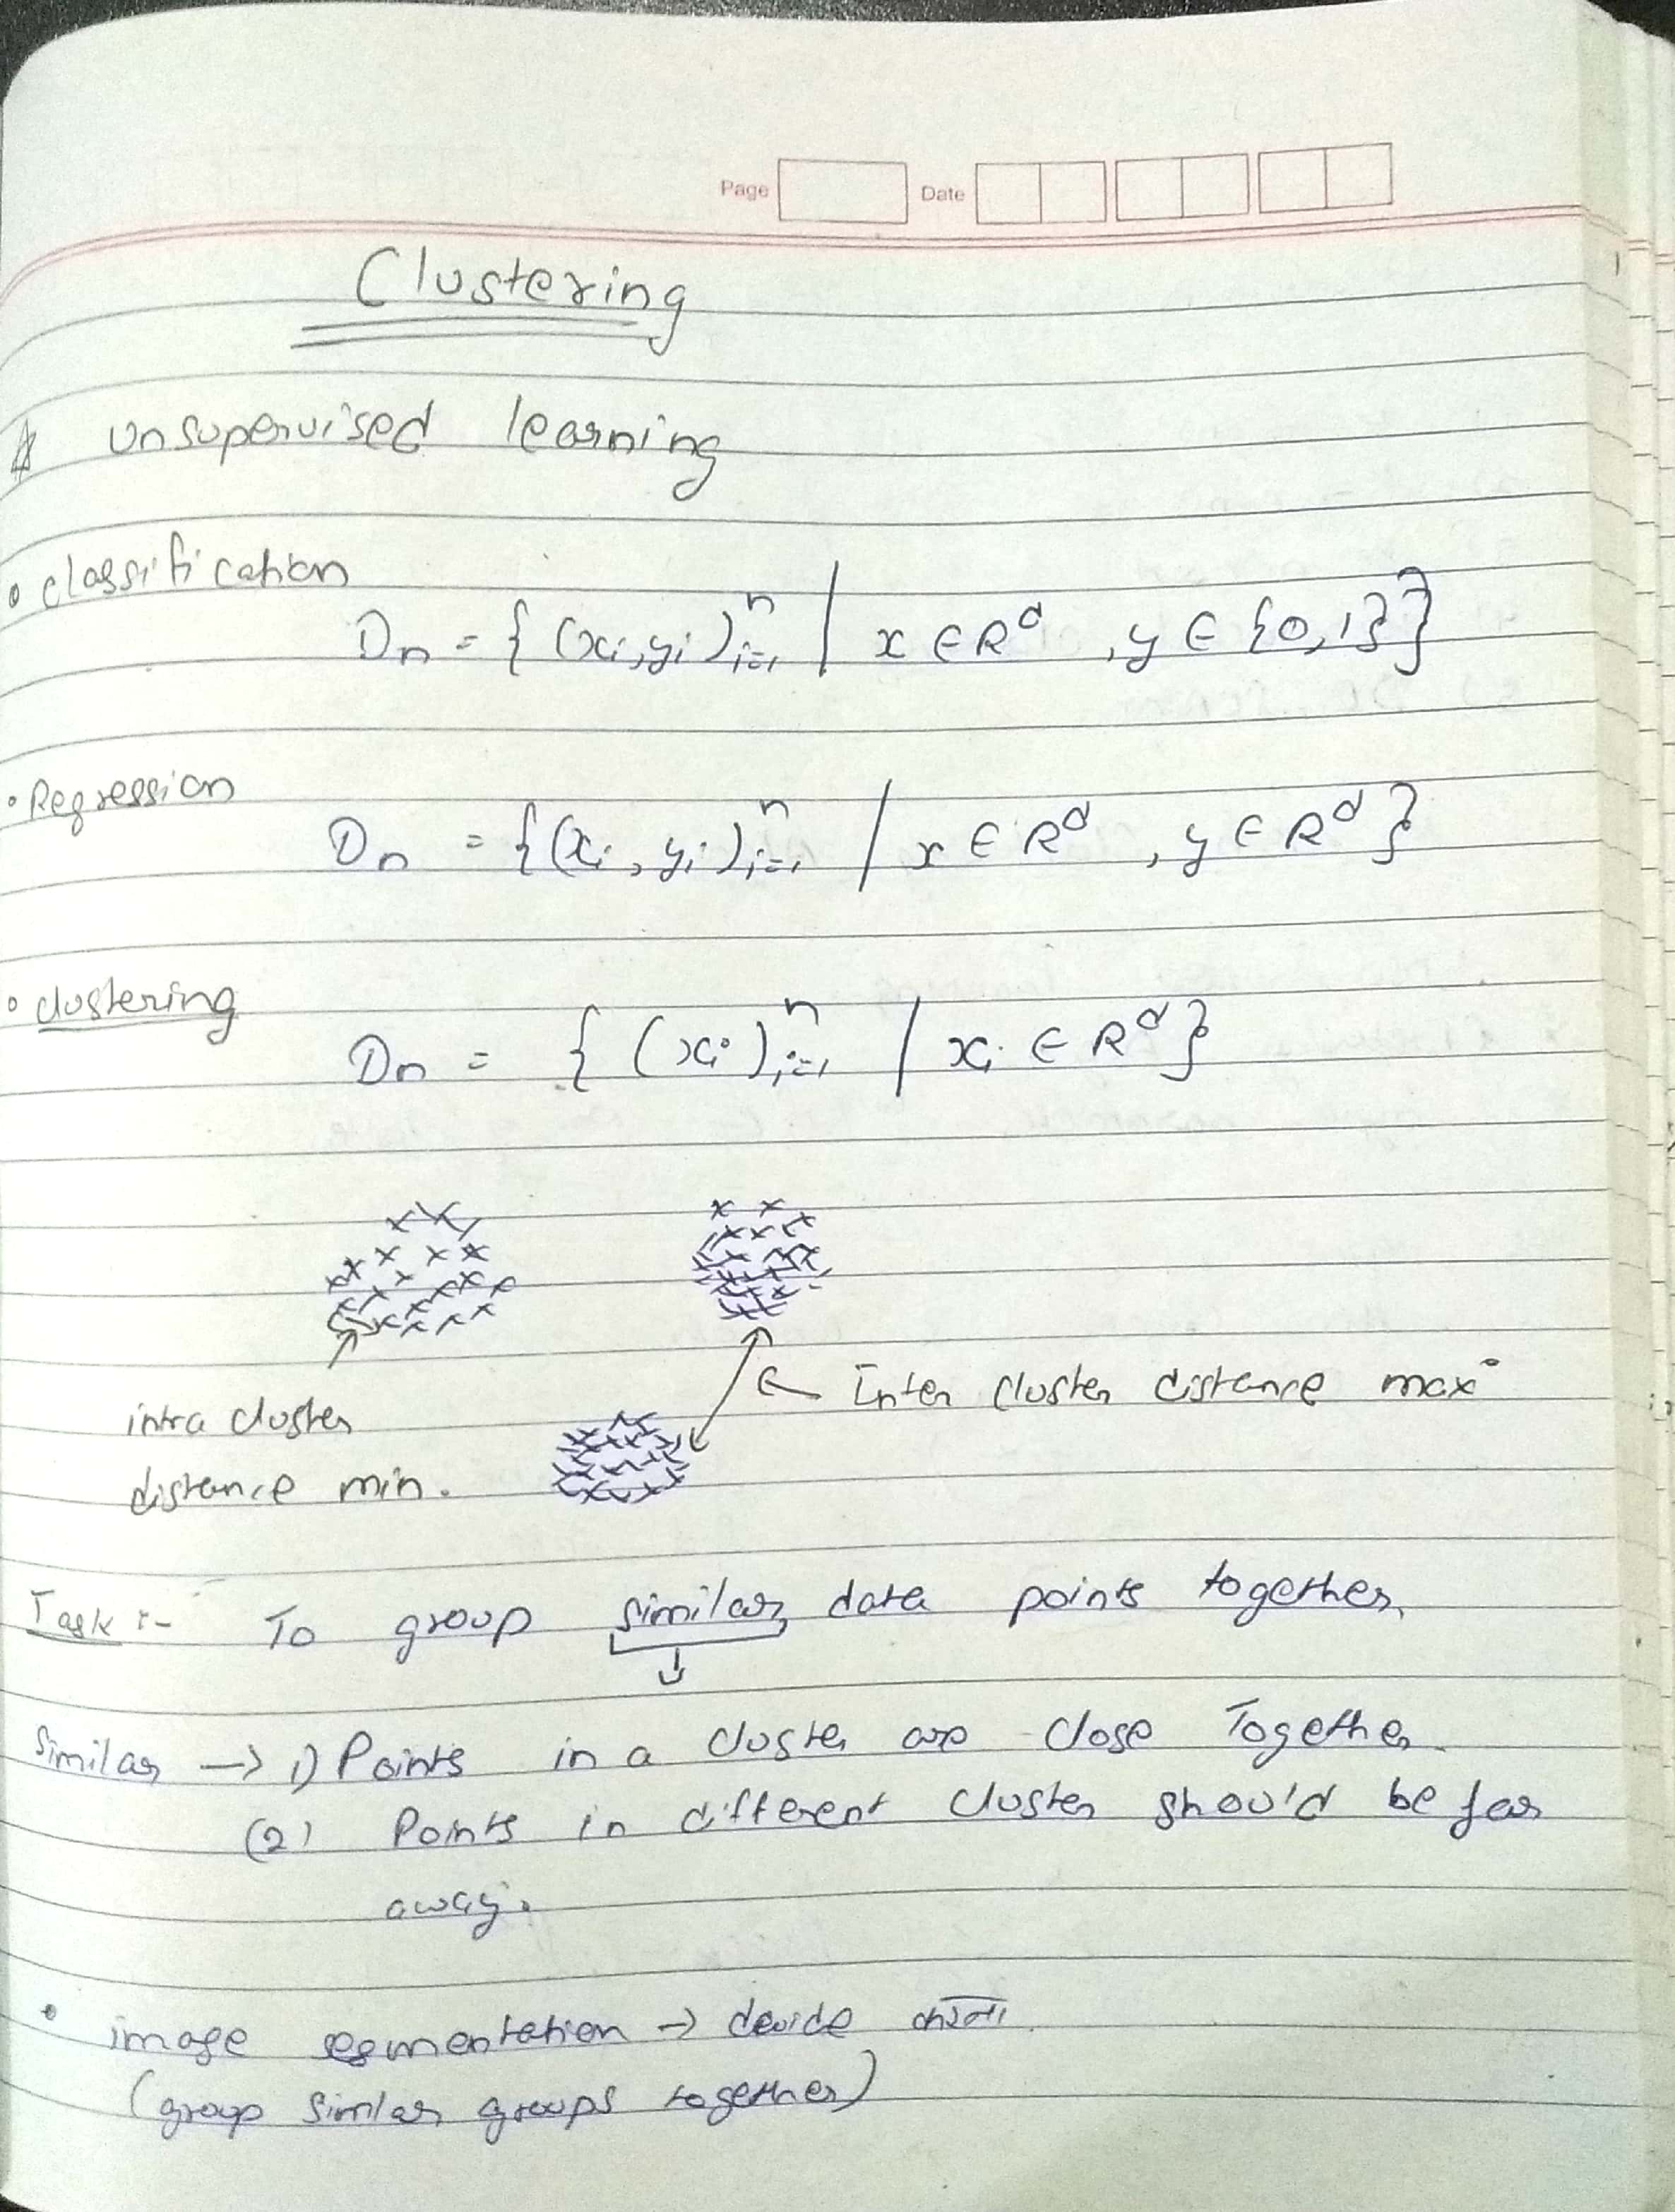 Page Date
Clustering
# Unsupervised learning
• classification
Dn = { (xi, yi)ⁿi=1 | x ∈ Rᵈ , y ∈ {0,1}}
• Regression
Dn = {(xi, yi)ⁿi=1 / x ∈ Rᵈ , y ∈ Rᵈ}
• clustering
Dn = { (xi)ⁿi=1 / xi ∈ Rᵈ}
Inter cluster distance max
intra cluster
distance min.
Task :- To group similar data points together
Similar → 1) Points in a cluster are close Together
(2) Points in different cluster should be far
away.
• image segmentation → devide
(group similar groups together)